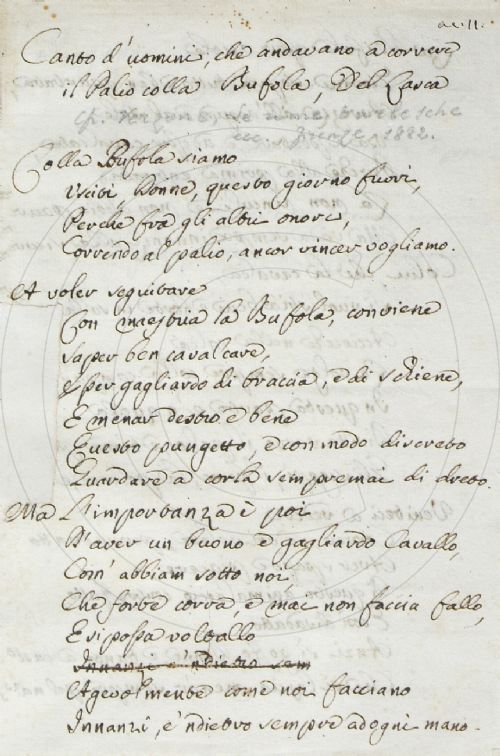 ac. 11.
Canto d'uomini, che andavano à correre
il Palio colla Bufola, Del Lasca
Firenze 1882.
Colla Bufola siamo
Usciti, Donne, questo giorno fuori,
Perche frà gli altri onori,
Correndo al palio, ancor vincer vogliamo.
A voler seguitare
Con maestria la Bufola, conviene
Saper ben cavalcare,
Esser gagliardo di braccia, è di schiene,
E menar destro è bene
Questo pungetto, è con modo discreto
Guardare à corla sempremai di dreto.
Ma L'importanza è poi
D'aver un buono è gagliardo Cavallo,
Com' abbiam sotto noi,
Che forte corra, è mai non faccia fallo,
E si possa voltallo
Innanzi e 'ndietro sem
Agevolmente come noi facciano
Innanzi, è 'ndietro sempre ad ogni mano.